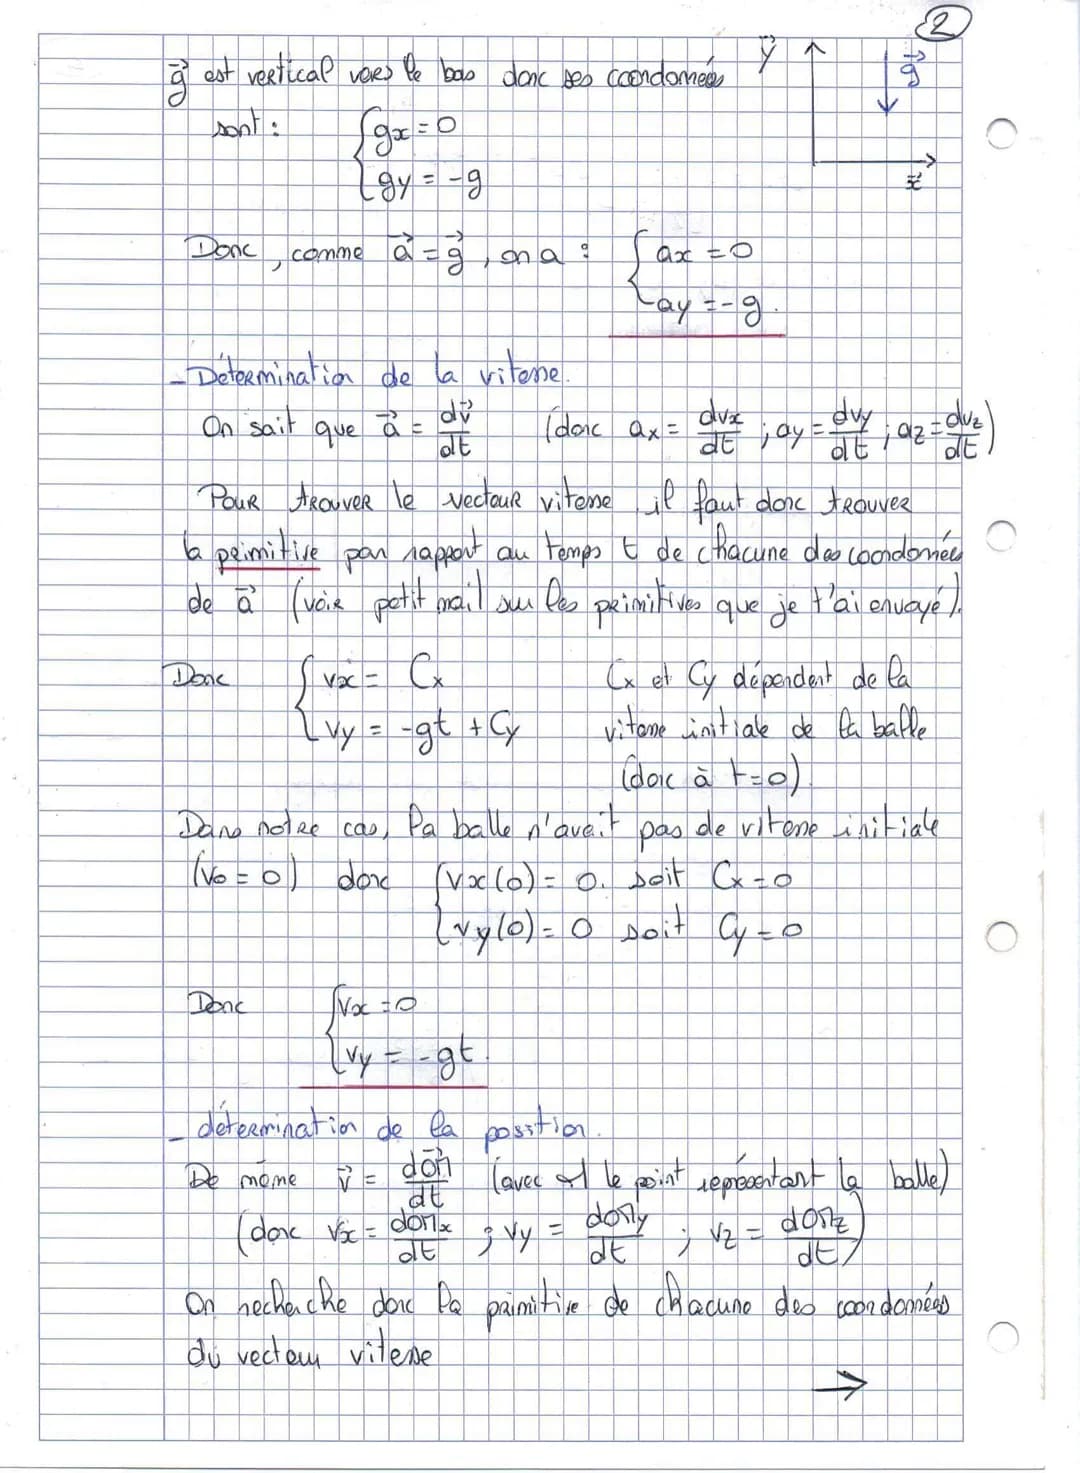 2
g⃗ est vertical vers le bas donc ses coordonnées
y⃗
g⃗
sont : { gx = 0
{ gy = -g
x⃗
Donc, comme a⃗ = g⃗, on a : { ax = 0
{ ay = -g.
- Détermination de la vitesse.
On sait que a⃗ = dv⃗/dt (donc ax = dvx/dt ; ay = dvy/dt ; az = dvz/dt)
Pour trouver le vecteur vitesse il faut donc trouver
la primitive par rapport au temps t de chacune des coordonnées
de a⃗ (voir petit mail sur les primitives que je t'ai envoyé).
Donc { vx = Cx
{ vy = -gt + Cy
Cx et Cy dépendent de la
vitesse initiale de la balle
(donc à t=0).
Dans notre cas, la balle n'avait pas de vitesse initiale
(v0 = 0) donc { vx(0) = 0. soit Cx = 0
{ vy(0) = 0 soit Cy = 0
Donc { vx = 0
{ vy = -gt.
- détermination de la position.
De même v⃗ = dOM⃗/dt (avec M le point représentant la balle)
(donc vx = dOMx/dt ; vy = dOMy/dt ; vz = dOMz/dt)
On recherche donc la primitive de chacune des coordonnées
du vecteur vitesse
→